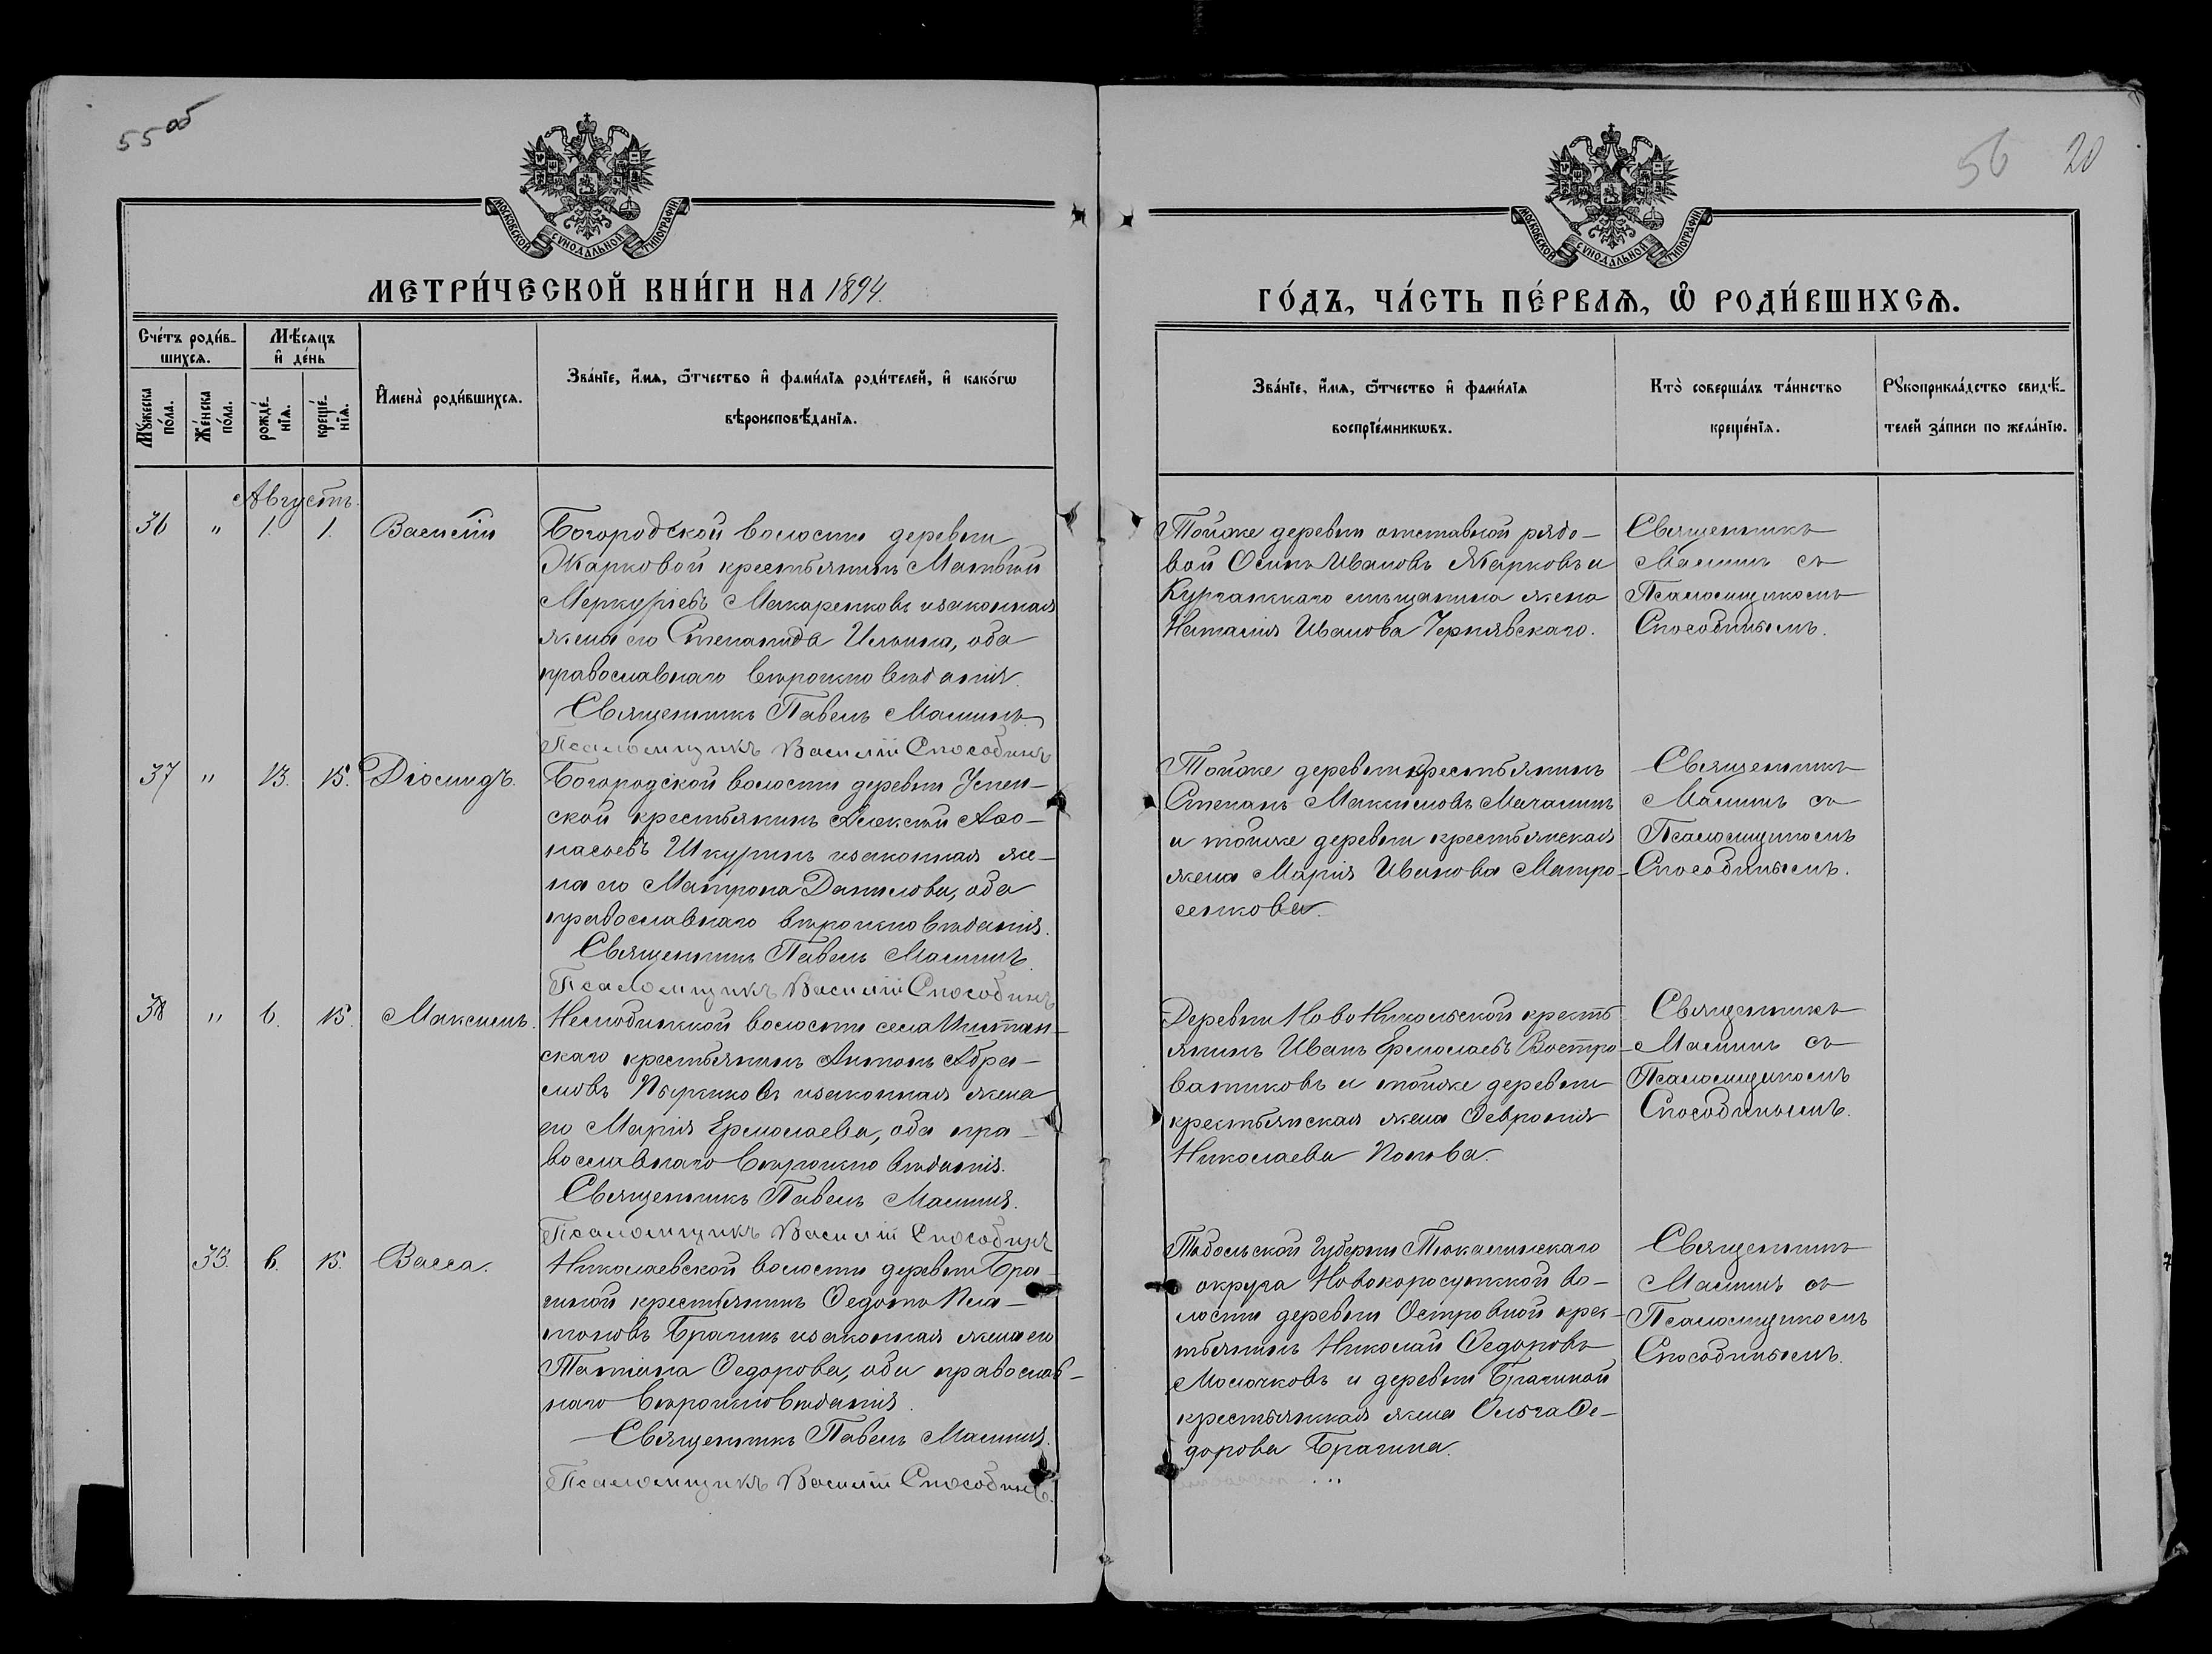 55 об
56 20
МОСКОВСКОЙ СѴНОДАЛЬНОЙ ТИПОГРАФІИ
МОСКОВСКОЙ СѴНОДАЛЬНОЙ ТИПОГРАФІИ
МЕТРИ́ЧЕСКОЙ КНИ́ГИ НА 1894.
ГО́ДЪ, ЧА́СТЬ ПЕ́РВАѦ, Ѿ РОДИ́ВШИХСѦ.
Сче́тъ роди́в-
шихсѧ.
Мꙋ́жеска
по́ла.
Же́нска
по́ла.
Мѣ́сяцъ
и҆ де́нь
рожде́-
нїѧ.
креще́-
нїѧ.
И҆мена̀ роди́вшихсѧ.
Зва́нїе, и҆́мѧ, ѻ҆́тчество и҆ фами́лїѧ роди́телей, и҆ како́гѡ
вѣроисповѣ́данїѧ.
Зва́нїе, и҆́мѧ, ѻ҆́тчество и҆ фами́лїѧ
воспрїе́мникѡвъ.
Кто̀ соверша́лъ та́инство
креще́нїѧ.
Рꙋкоприкла́дство свидѣ́-
телей за́писи по жела́нїю.
Августъ.
36 " 1. 1. Василій
Богородской волости деревни
Жарковой крестьянинъ Матвѣй
Меркурьевъ Макаренковъ изаконная
жена его Степанида Ильина, оба
православнаго вѣроисповѣданія.
Священникъ Павелъ Машинъ
Псаломщикъ Василій Способинъ
Тойже деревни отставной рядо-
вой Осипъ Ивановъ Жарковъ и
Курганскаго мѣщанина жена
Наталія Иванова Чернявскаго.
Священникъ
Машинъ съ
Псаломщикомъ
Способинымъ.
37 " 13. 15. Діомидъ.
Богородской волости деревни Успен-
ской крестьянинъ Алексѣй Аѳо-
насьевъ Шкуринъ изаконная же-
на его Матрона Данилова, оба
православнаго вѣроисповѣданія.
Священникъ Павелъ Машинъ
Псаломщикъ Василій Способинъ
Тойже деревни крестьянинъ
Степанъ Максимовъ
и тойже деревни крестьянская
жена Марія Иванова Матро-
сенкова.
Священникъ
Машинъ съ
Псаломщикомъ
Способинымъ.
38 " 6. 15. Максимъ.
волости села
скаго крестьянинъ Антонъ Абра-
мовъ изаконная жена
его Марія Ермолаева, оба пра-
вославнаго вѣроисповѣданія.
Священникъ Павелъ Машинъ.
Псаломщикъ Василій Способинъ
Деревни НовоНикольской кресть-
янинъ Иванъ Ермолаевъ Востро-
ватиковъ и тойже деревни
крестьянская жена Ѳевронія
Николаева Попова.
Священникъ
Машинъ съ
Псаломщикомъ
Способинымъ.
33. 6. 15. Васса.
Николаевской волости деревни Бра-
гиной крестьянинъ Ѳедотъ Пла-
тоновъ Брагинъ изаконная жена его
Татіана Ѳедорова, оба православ-
наго вѣроисповѣданія.
Священникъ Павелъ Машинъ.
Псаломщикъ Василій Способинъ.
Тобольской Губерніи Тюкалинскаго
округа Новокарасукской во-
лости деревни Островной крес-
тьянинъ Николай Ѳедоровъ
Молочковъ и деревни Брагиной
крестьянская жена Ольга Ѳе-
дорова Брагина.
Священникъ
Машинъ съ
Псаломщикомъ
Способинымъ.